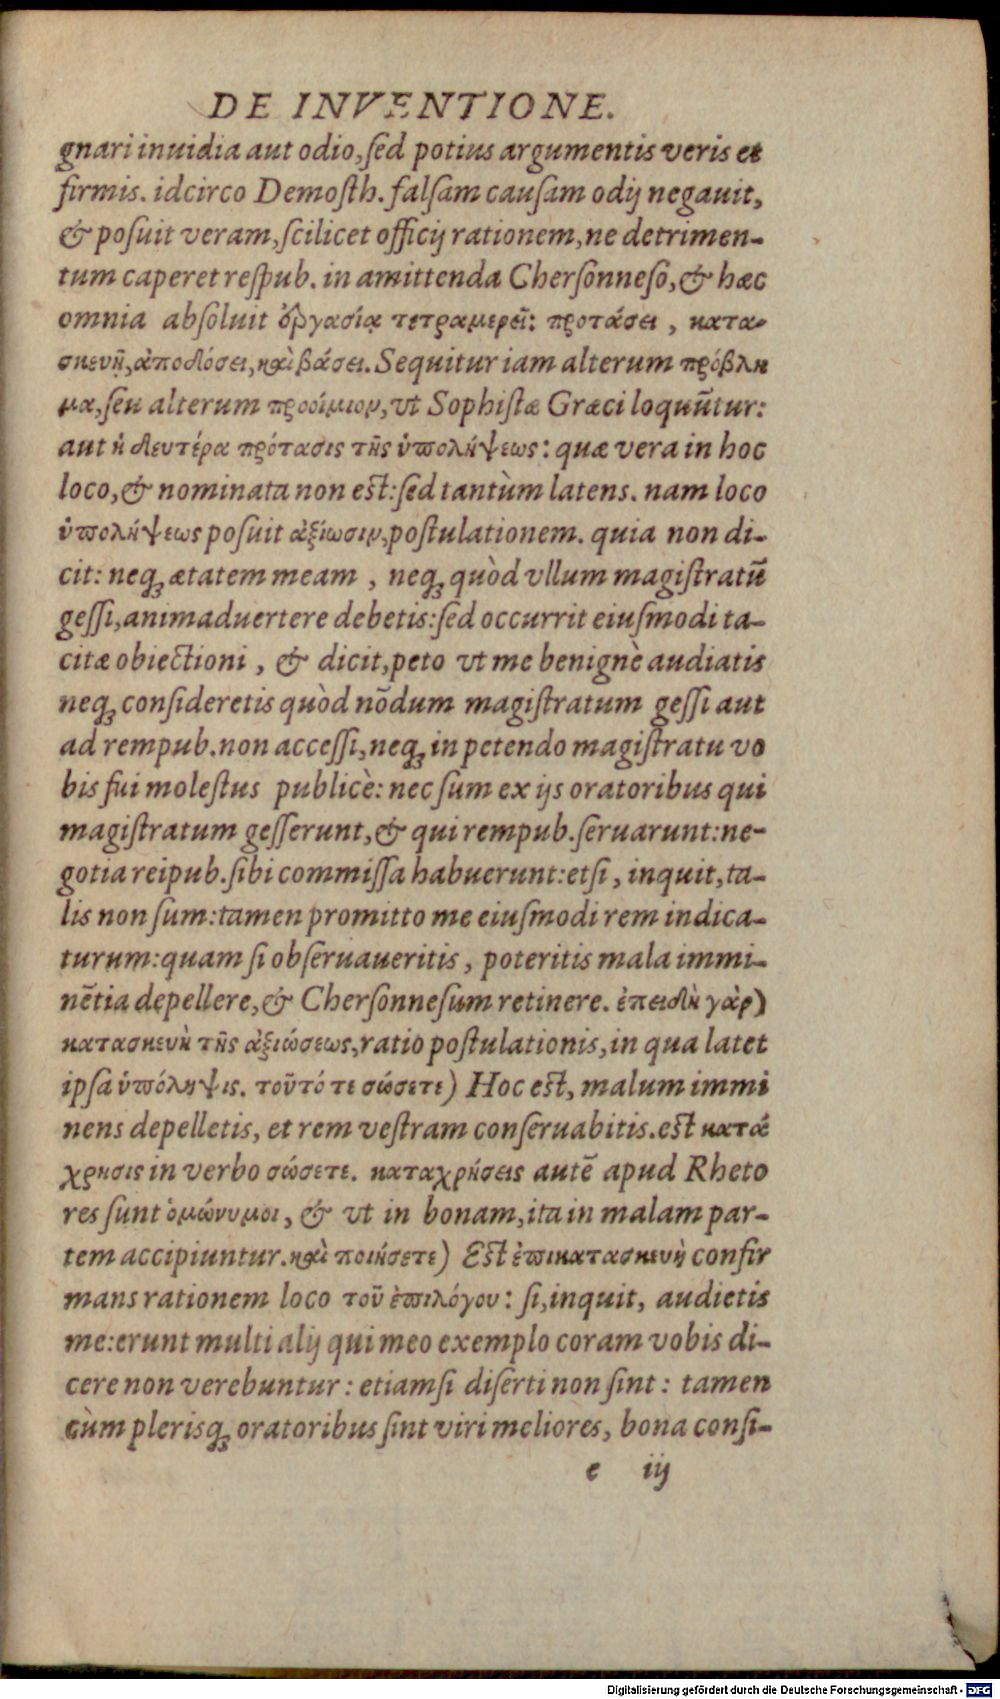 DE INVENTIONE.
gnari inuidia aut odio, sed potius argumentis veris et
firmis. idcirco Demosth. falsam causam odij negauit,
& posuit veram, scilicet officij rationem, ne detrimen-
tum caperet respub. in amittenda Chersonneso, & hæc
omnia absoluit ὀργασίᾳ τετραμερεῖ: προτάσει, κατα-
σκευῇ, ἀποδόσει, καὶ βάσει. Sequitur iam alterum πρόβλη
μα, seu alterum προοίμιον, vt Sophistæ Græci loquūtur:
aut ἡ δευτέρα πρότασις τῆς ὑπολήψεως: quæ vera in hoc
loco, & nominata non est: sed tantùm latens. nam loco
ὑπολήψεως posuit ἀξίωσιν, postulationem. quia non di-
cit: neq; ætatem meam, neq; quòd vllum magistratū
gessi, animaduertere debetis: sed occurrit eiusmodi ta-
citæ obiectioni, & dicit, peto vt me benignè audiatis
neq; consideretis quòd nōdum magistratum gessi aut
ad rempub. non accessi, neq; in petendo magistratu vo
bis fui molestus publicè: nec sum ex ijs oratoribus qui
magistratum gesserunt, & qui rempub. seruarunt: ne-
gotia reipub. sibi commissa habuerunt: etsi, inquit, ta-
lis non sum: tamen promitto me eiusmodi rem indica-
turum: quam si obseruaueritis, poteritis mala immi-
nētia depellere, & Chersonnesum retinere. ἐπειδὴ γὰρ)
κατασκευὴ τῆς ἀξιώσεως, ratio postulationis, in qua latet
ipsa ὑπόληψις. τοῦτό τε σώσετε) Hoc est, malum immi
nens depelletis, et rem vestram conseruabitis. est κατά
χρησις in verbo σώσετε. καταχρήσεις autē apud Rheto
res sunt ὁμώνυμοι, & vt in bonam, ita in malam par-
tem accipiuntur. καὶ ποιήσετε) Est ἐπικατασκευὴ confir
mans rationem loco τοῦ ἐπιλόγου: si, inquit, audietis
me: erunt multi alij qui meo exemplo coram vobis di-
cere non verebuntur: etiamsi diserti non sint: tamen
cùm plerisq; oratoribus sint viri meliores, bona consi-
e iij
Digitalisierung gefördert durch die Deutsche Forschungsgemeinschaft - DFG